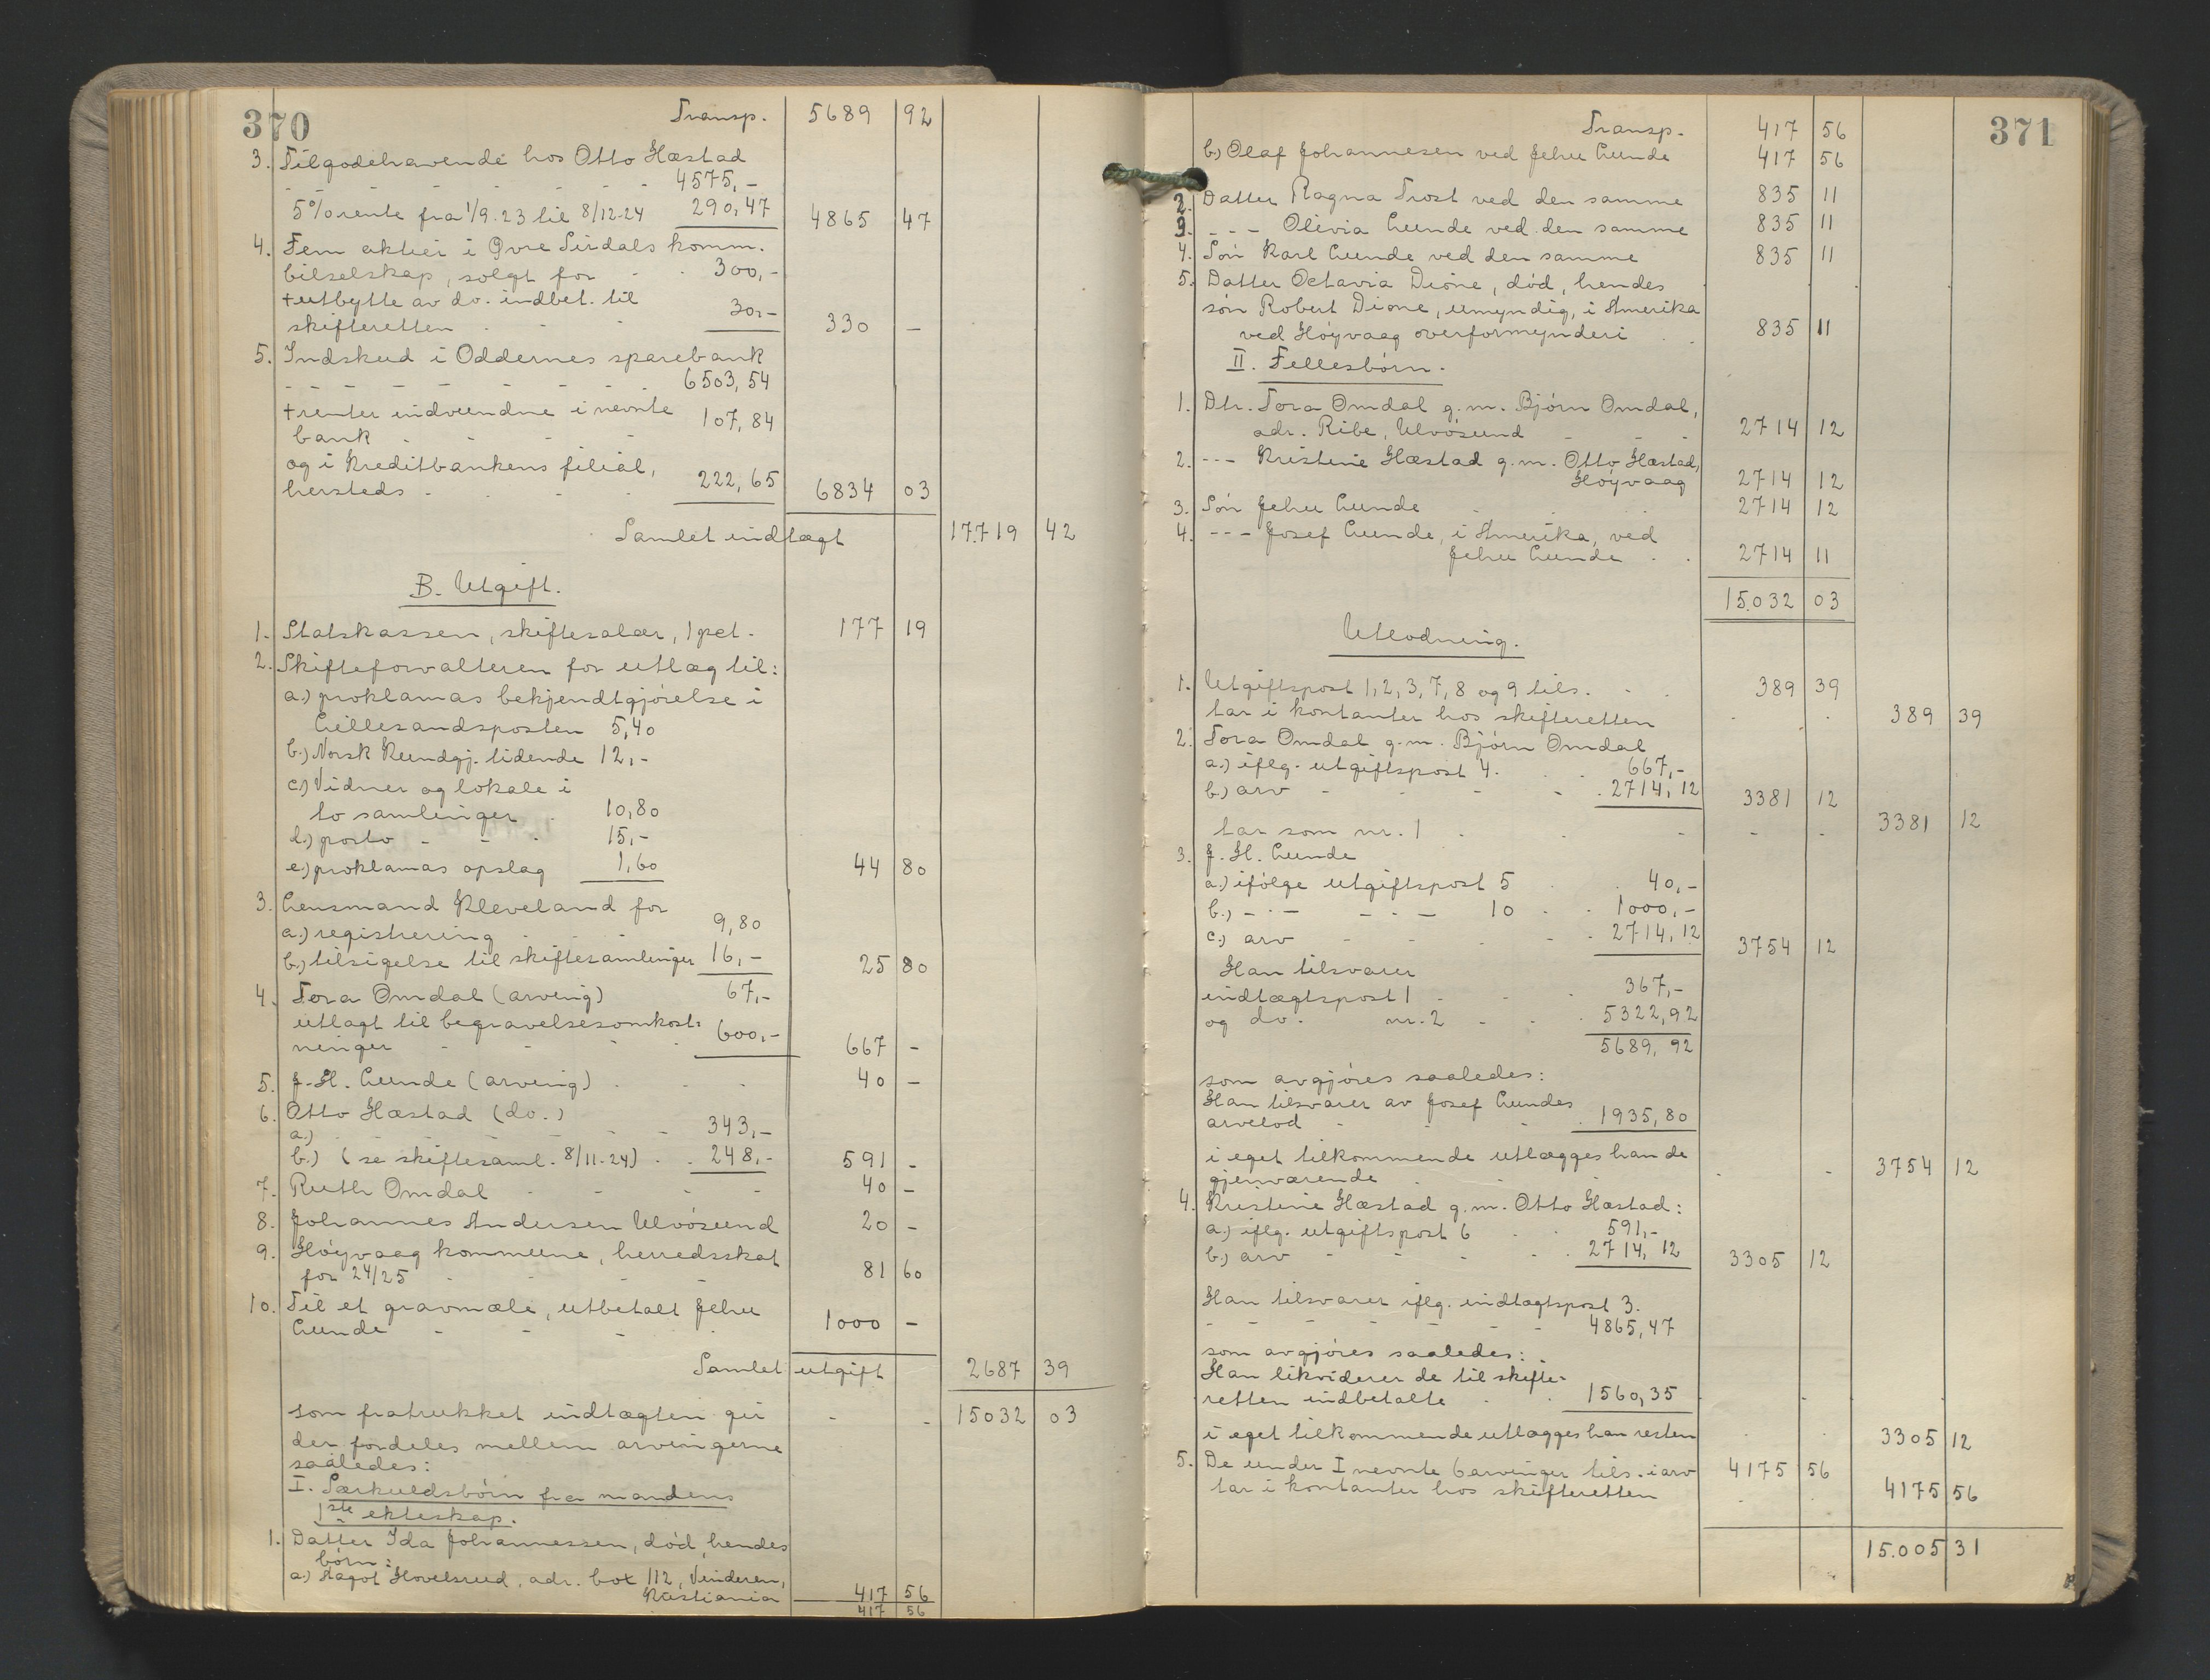 370
Transp. 5689 92
3. Tilgodehavende hos Otto Hæstad
- - - - - - - 4575,-
5% rente fra 1/9.23 til 8/12-24 290,47 4865 47
4. Fem aktier i Øvre Sirdals komm.
bilselskap, solgt for - - 300,-
+ utbytte av do. indbet. til
skifteretten - - - 30,- 330 -
5. Indskud i Oddernes sparebank
- - - - - - - 6503,54
+ renter indvundne i nevnte
bank - - - - 107,84
og i Kreditbankens filial,
hersteds - - - - 222,65 6834 03
Samlet indtægt 17.719 42
B. Utgift.
1. Statskassen, skiftesalær, 1 pct. 177 19
2. Skifteforvalteren for utlæg til:
a.) proklamas bekjendtgjørelse i
Lillesandsposten 5,40
b.) Norsk Kundgj. tidende 12,-
c.) Vidner og lokale i
to samlinger - 10,80
d.) porto - - - 15,-
e.) proklamas opslag 1,60 44 80
3. Lensmand Kleveland for
a.) registrering - - - 9,80
b.) tilsigelse til skiftesamlinger 16,- 25 80
4. Tora Omdal (arving) 67,-
utlagt til begravelsesomkost-
ninger - - - - 600,- 667 -
5. J. H. Lunde (arving) - - - 40 -
6. Otto Hæstad (do.)
a.) - - - - - - 343,-
b.) (se skiftesaml. 8/11-24) - - 248,- 591 -
7. Ruth Omdal - - - - 40 -
8. Johannes Andersen Ulvøsund 20 -
9. Høyvaag kommune, herredsskat
for 24/25 - - - - 81 60
10. Til et gravmæle, utbetalt Jehu
Lunde - - - - 1000 -
Samlet utgift 2687 39
som fratrukket indtægten gir - - 15032 03
der fordeles mellem arvingerne
saaledes:
I. Særkuldsbørn fra mandens
1ste ekteskap.
1. Datter Ida Johannessen, død, hendes
børn:
a.) Aagot Hovelsrud, adr. box 112, Vinderen,
Kristiania 417 56
417 56
371
Transp. 417 56
b.) Olaf Johannesen ved Jehu Lunde 417 56
2. Datter Ragna Trost ved den samme 835 11
3. - - - Olivia Lunde ved den samme 835 11
4. Søn Karl Lunde ved den samme 835 11
5. Datter Octavia Dione, død, hendes
søn Robert Dione, umyndig, i Amerika
ved Høyvaag overformynderi - - 835 11
II. Fellesbørn.
1. Dtr. Tora Omdal g.m. Bjørn Omdal,
adr. Ribe, Ulvøsund - - - 2714 12
2. - - - Kristine Hæstad g.m. Otto Hæstad,
Høyvaag 2714 12
3. Søn Jehu Lunde - - - 2714 12
4. - - - Josef Lunde, i Amerika, ved
Jehu Lunde - - 2714 11
15.032 03
Utlodning.
1. Utgiftspost 1, 2, 3, 7, 8 og 9 tils. - - 389 39
tar i kontanter hos skifteretten - - 389 39
2. Tora Omdal g.m. Bjørn Omdal
a.) iflg. utgiftspost 4. - - 667,-
b.) arv - - - - 2714,12 3381 12
tar som nr. 1 - - - - - 3381 12
3. J. H. Lunde
a.) ifølge utgiftspost 5 - - 40,-
b.) - - - - - - 10 - - 1000,-
c.) arv - - - - 2714,12 3754 12
Han tilsvarer
indtægtspost 1 - - - 367,-
og do. nr. 2 - - - 5322,92
5689,92
som avgjøres saaledes:
Han tilsvarer av Josef Lundes
arvelod - - - - 1935,80
i eget tilkommende utlægges han de
gjenværende - - - - 3754 12
4. Kristine Hæstad g.m. Otto Hæstad:
a.) iflg. utgiftspost 6 - - 591,-
b.) arv - - - - 2714,12 3305 12
Han tilsvarer iflg. indtægtspost 3.
- - - - - - - 4865,47
som avgjøres saaledes:
Han likviderer de til skifte-
retten indbetalte - - 1560,35
i eget tilkommende utlægges han resten - - 3305 12
5. De under I nevnte 6 arvinger tils. i arv 4175 56
tar i kontanter hos skifteretten - - 4175 56
15.005 31